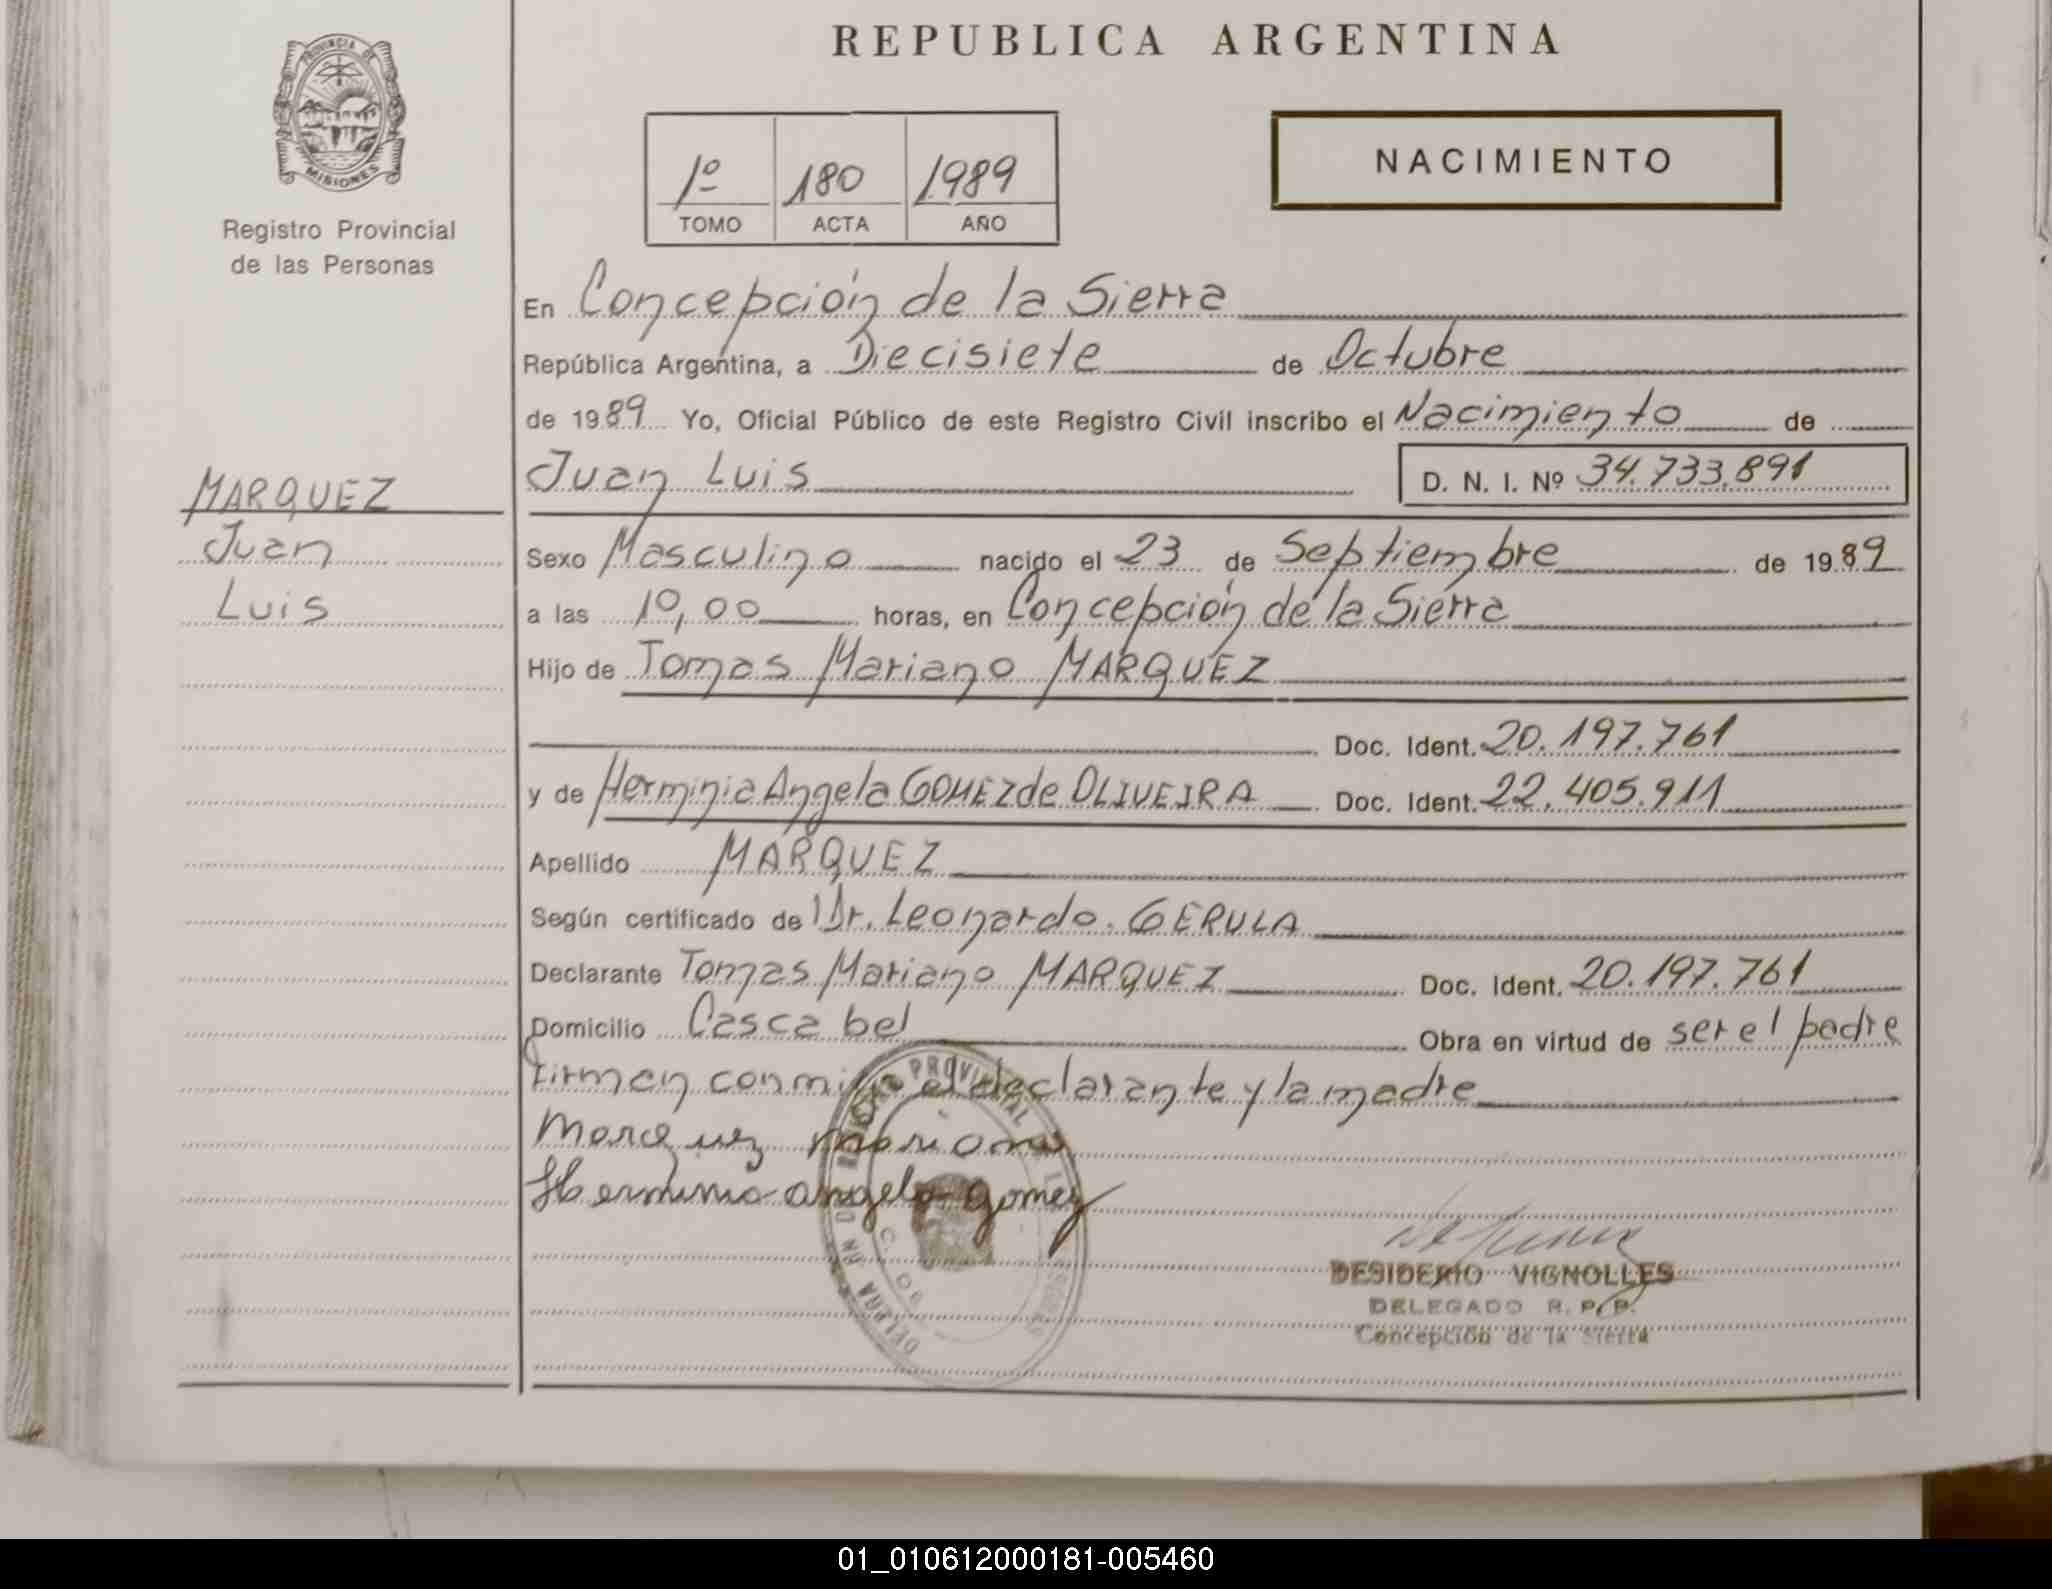 REPUBLICA ARGENTINA
PROVINCIA DE
MISIONES
Registro Provincial
de las Personas
1º 180 1989
TOMO ACTA AÑO
NACIMIENTO
En Concepción de la Sierra
República Argentina, a Diecisiete de Octubre
de 1989 Yo, Oficial Público de este Registro Civil inscribo el Nacimiento de
MARQUEZ
Juan
Luis
Juan Luis D. N. I. Nº 34.733.891
Sexo Masculino nacido el 23 de Septiembre de 1989
a las 10,00 horas, en Concepción de la Sierra
Hijo de Tomas Mariano MARQUEZ
Doc. Ident. 20.197.761
y de Herminia Angela GOMEZ de OLIVEIRA Doc. Ident. 22.405.911
Apellido MARQUEZ
Según certificado de Dr. Leonardo. GERULA
Declarante Tomas Mariano MARQUEZ Doc. Ident. 20.197.761
Domicilio Cascabel Obra en virtud de ser el padre
Firman conmigo el declarante y la madre
Marquez mariano
Herminia angela gomez
DESIDERIO VIGNOLLES
DELEGADO R. P. P.
Concepción de la Sierra
01_010612000181-005460